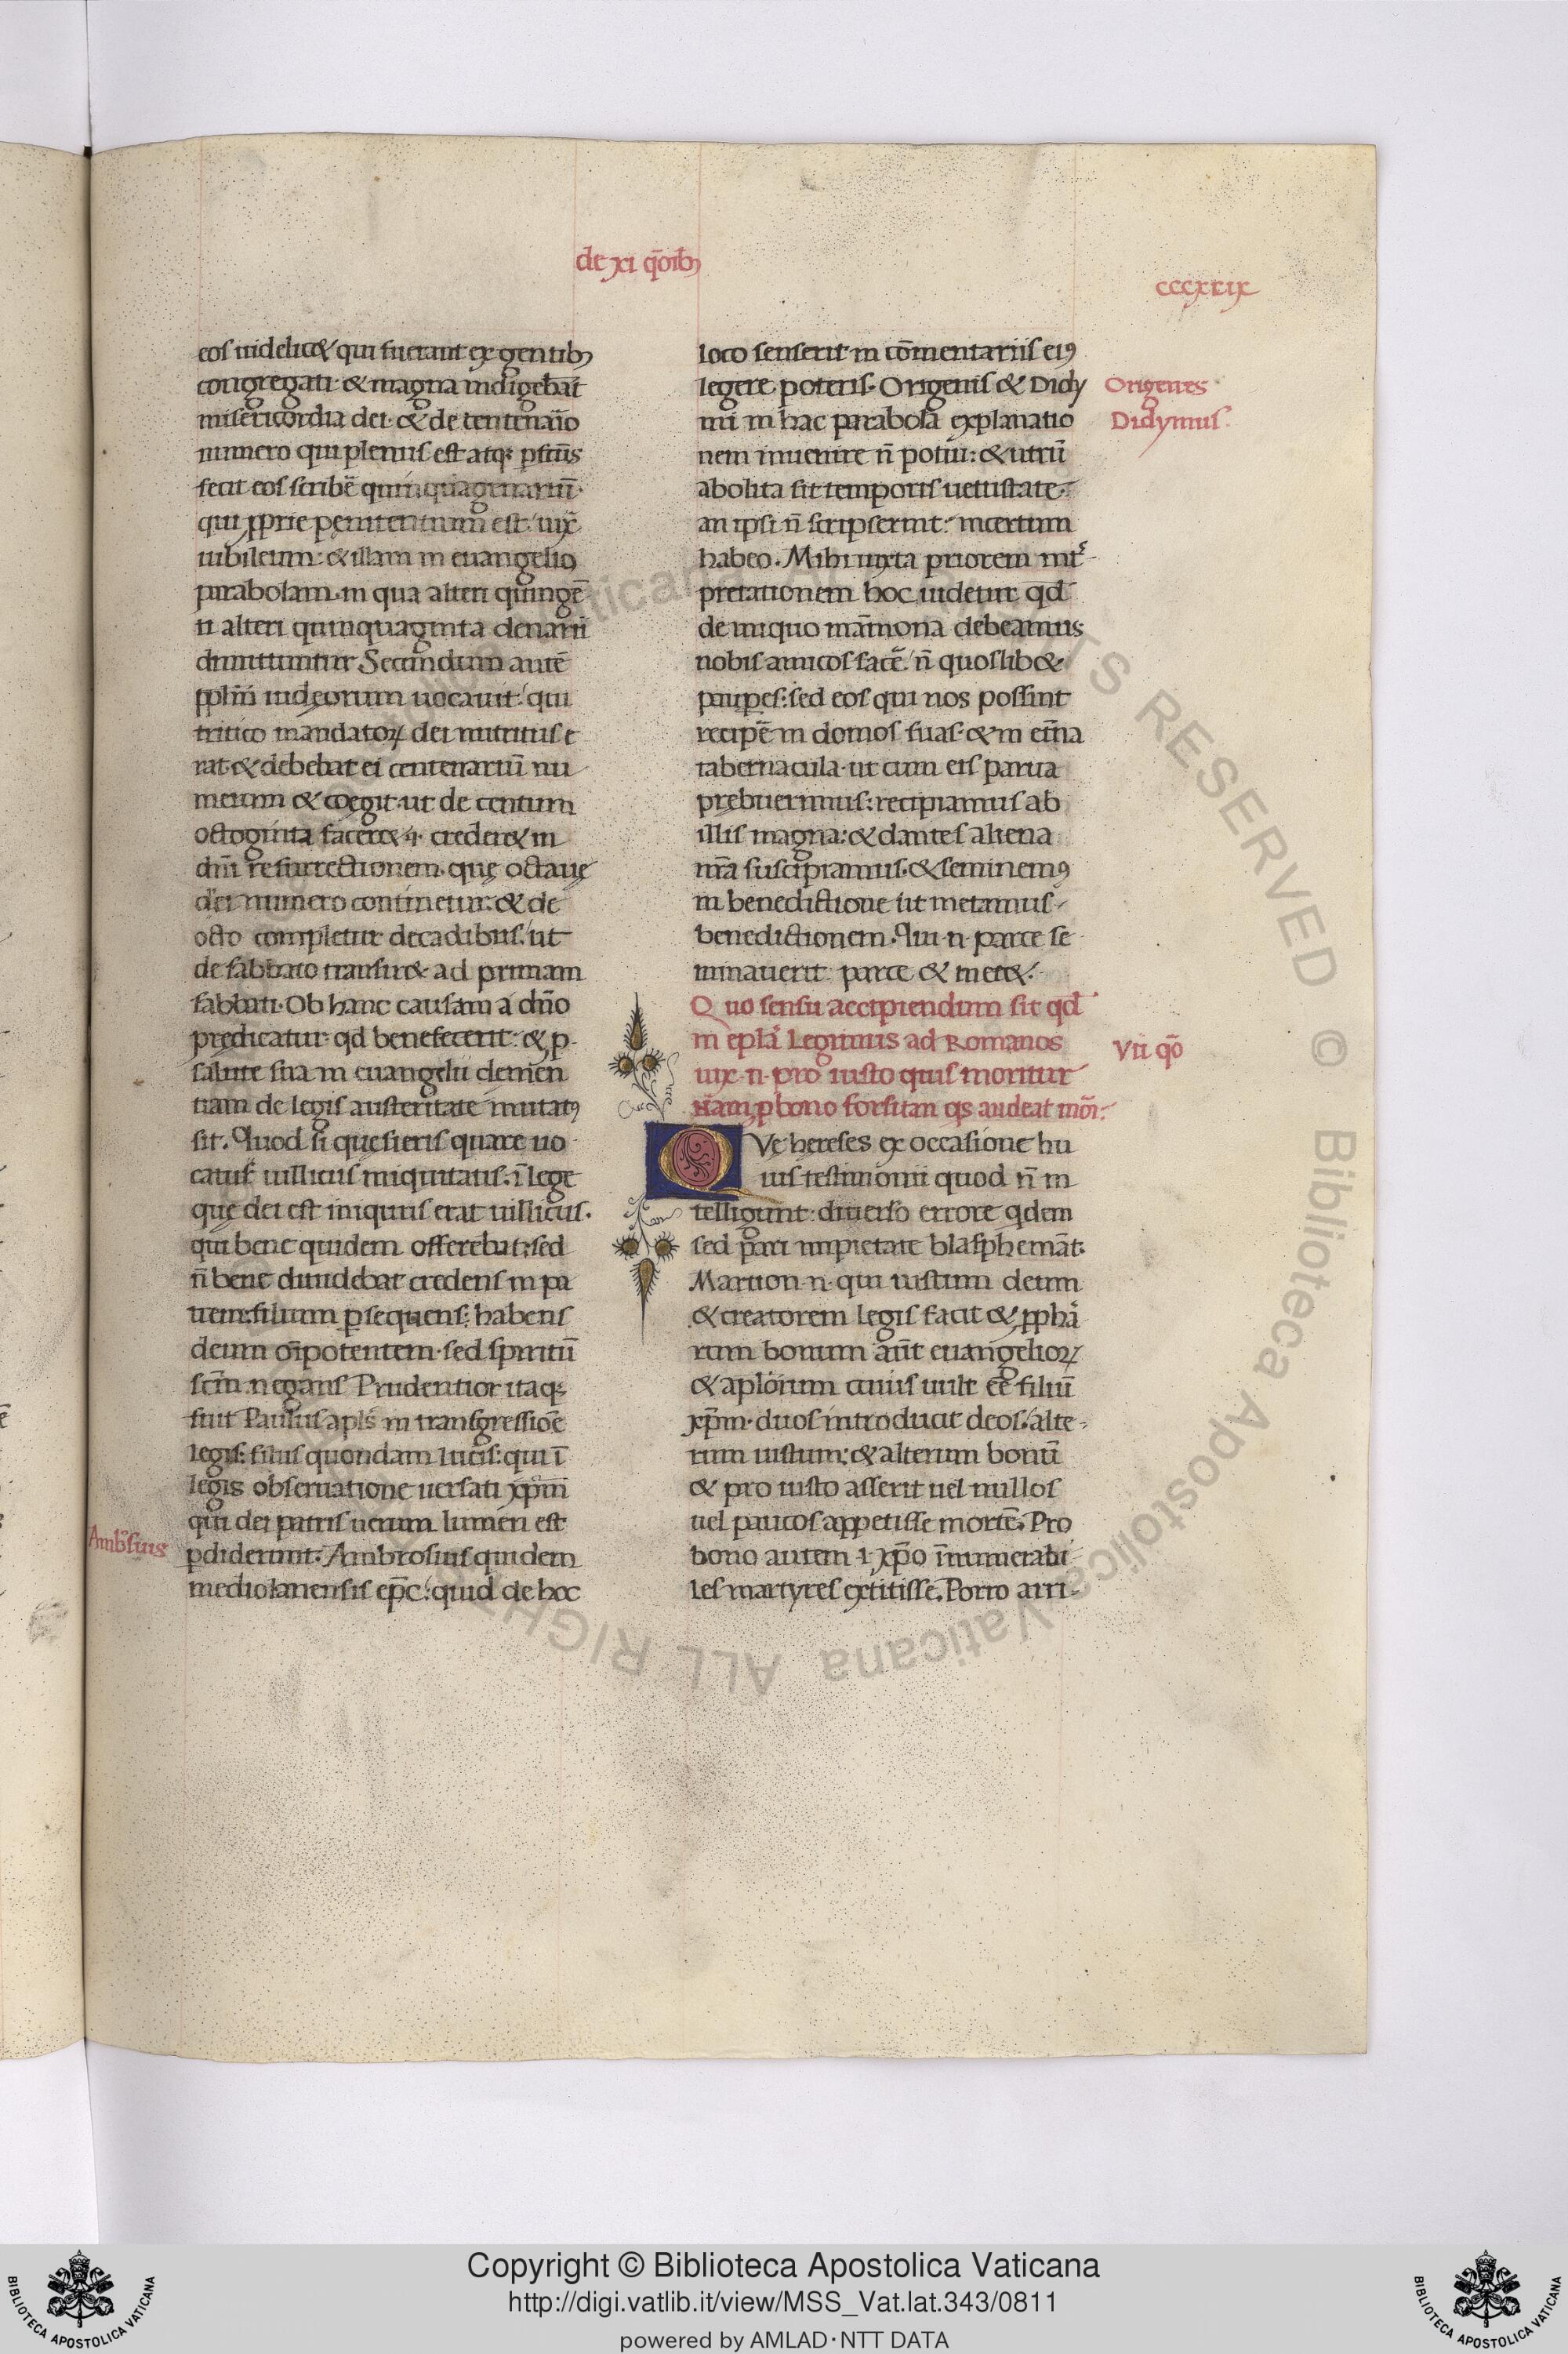 de xi q̄oıbꝫ
cccxxix
eos uidelicet qui fuerant ex gentibꝫ
congregati & magna indigebāt
misericordia dei· & de centenaīo
numero qui plenus est atqꝫ pfcūs
fecit eos scribē quinquagenariū·
qui ꝓprie penitentium est· iuxͣ
iubileum· & illam in euangelio
parabolam· in qua alteri quingē
ti alteri quinquaginta denarii
dimittuntur Secundum autē
ppłm iudęorum uocauit· qui
tritico mandatoꝝ dei nutritus e
rat & debebat ei centenariū nu
merum & coegit· ut de centum
octoginta faceret ·i· crederet in
dn̄i resurrectionem· que octauę
diei numero continetur: & de
octo completur decadibus· ut
de sabbato transiret ad primam
sabbati· Ob hanc causam a dn̄o
predicatur qd benefecerit: & p
salute sua in euangelii clemen
tiam de legis austeritate mutatꝰ
sit· Quod si quesieris quare uo
catur uillicus iniquitatis: ī lege
que dei est iniquus erat uillicus·
qui bene quidem offerebat: sed
n̄ bene diuidebat credens in pa
trem: filium ꝑsequens: habens
deum oīpotentem· sed spiritū
scm̄ negans Prudentior itaqꝫ
fuit Paulus apls in transgressiōe
legis: filiis quondam lucis: qui ī
legis obseruatione uersati xp̄m
qui dei patris uerum lumen est
ꝑdiderunt· Ambrosius quidem
mediolanensis ep̄c: quid de hoc
Ambr̄sius
loco senserit in cōmentariis eiꝰ
legere poteris· Origenis & Didy
mi in hac parabola explanatio
nem inuenire n̄ potui: & utrū
abolita sit temporis uetustate·
an ipsi n̄ scripserint· incertum
habeo· Mihi iuxta priorem int̄
pretationem hoc uidetur qd
de iniquo māmona debeamus
nobis amicos facē· n̄ quoslibet
pauꝑes: sed eos qui nos possint
recipē in domos suas· & in etn̄a
tabernacula· ut cum eis parua
prębuerimus: recipiamus ab
illis magna: & dantes aliena
nr̄a suscipiamus· & seminemꝰ
in benedictione ut metamus
benedictionem· Qui ·n· parce se
minauerit· parce & metet·
Origenes
Didymus·
Quo sensu accipiendum sit qd
in epla Legimus ad Romanos
uix ·n· pro iusto quis moritur
nam ꝓ bono forsitan qs audeat mori:
Vii qō
QVe hereses ex occasione hu
ius testimonii quod n̄ in
telligunt: diuerso errore qdem
sed pari impietate blasphemāt·
Martion ·n· qui iustum deum
& creatorem legis facit & ꝓpha
rum bonum aūt euangelioꝝ
& aplorum cuius uult eē filiū
xp̄m· duos introducit deos· alte
rum iustum: & alterum bonū
& pro iusto asserit uel nullos
uel paucos appetisse mortē· Pro
bono autem ·i· xp̄o īnumerabi
les martyres extitisse· Porro arri
ALL RIGHTS RESERVED © Biblioteca Apostolica Vaticana
Copyright © Biblioteca Apostolica Vaticana
http://digi.vatlib.it/view/MSS_Vat.lat.343/0811
powered by AMLAD·NTT DATA
BIBLIOTECA APOSTOLICA VATICANA
BIBLIOTECA APOSTOLICA VATICANA